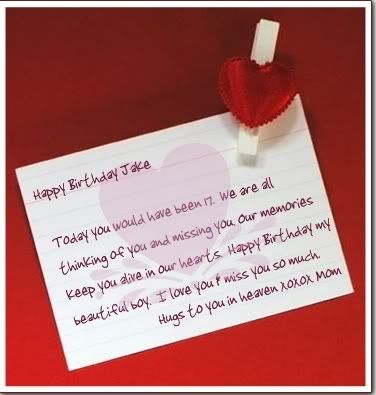 Happy Birthday Jake
Today you would have been 17. We are all
thinking of you and missing you. Our memories
keep you alive in our hearts. Happy Birthday my
beautiful boy. I love you & miss you so much.
Hugs to you in heaven XOXOX Mom